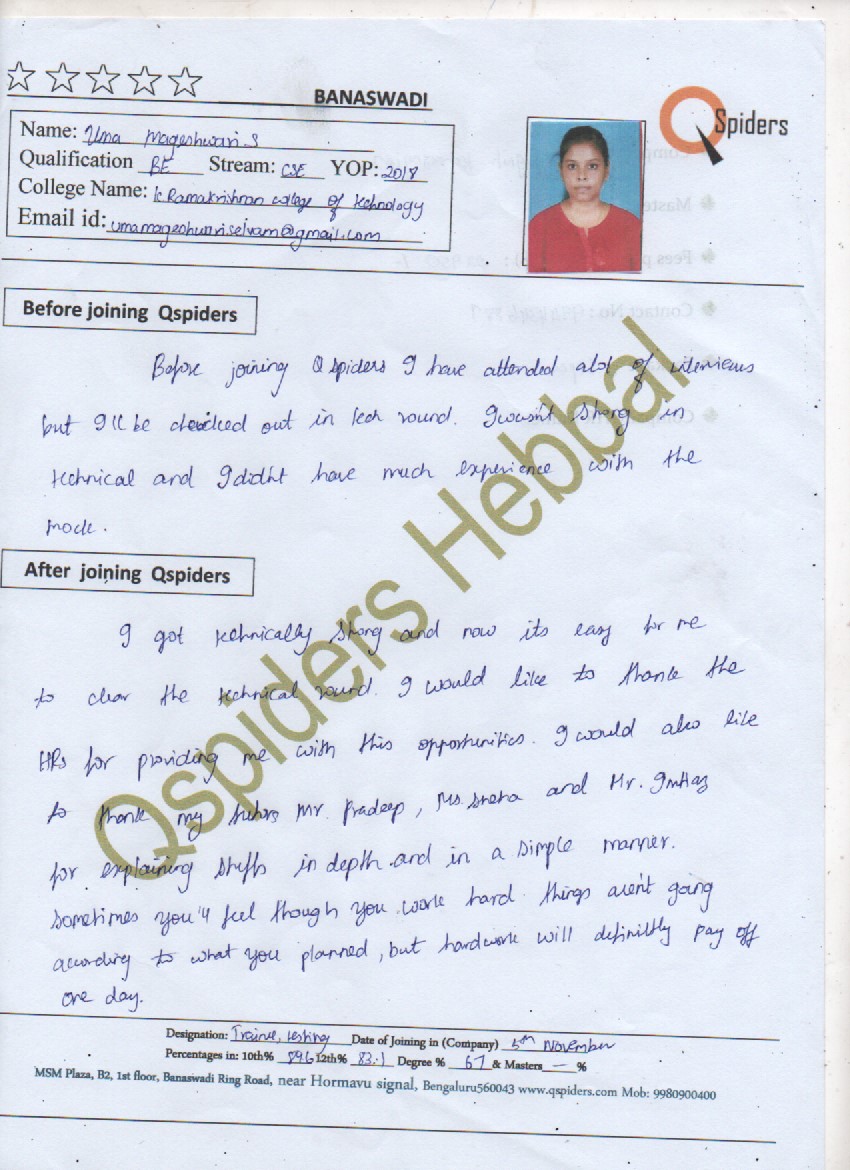 BANASWADI
QSpiders
Name: Uma Mageshwari.S
Qualification BE Stream: CSE YOP: 2018
College Name: K.Ramakrishnan college of technology
Email id: umamageshwari.selvam@gmail.com
Before joining Qspiders
Before joining Qspiders I have attended alot of interviews
but I'll be checked out in tech round. I wasn't strong in
technical and I didn't have much experience with the
mock.
After joining Qspiders
I got technically strong and now its easy for me
to clear the technical round. I would like to thank the
HRs for providing me with this opportunities. I would also like
to thank my tutors Mr. Pradeep, Ms. Sneha and Mr. Imtiaz
for explaining stuffs in depth and in a simple manner.
Sometimes you'll feel though you work hard things aren't going
according to what you planned, but hardwork will definitly pay off
one day.
Qspiders Hebbal
Designation: Trainee, testing Date of Joining in (Company) 5th November
Percentages in: 10th% 89.6 12th% 83.1 Degree % 67 & Masters — %
MSM Plaza, B2, 1st floor, Banaswadi Ring Road, near Hormavu signal, Bengaluru560043 www.qspiders.com Mob: 9980900400